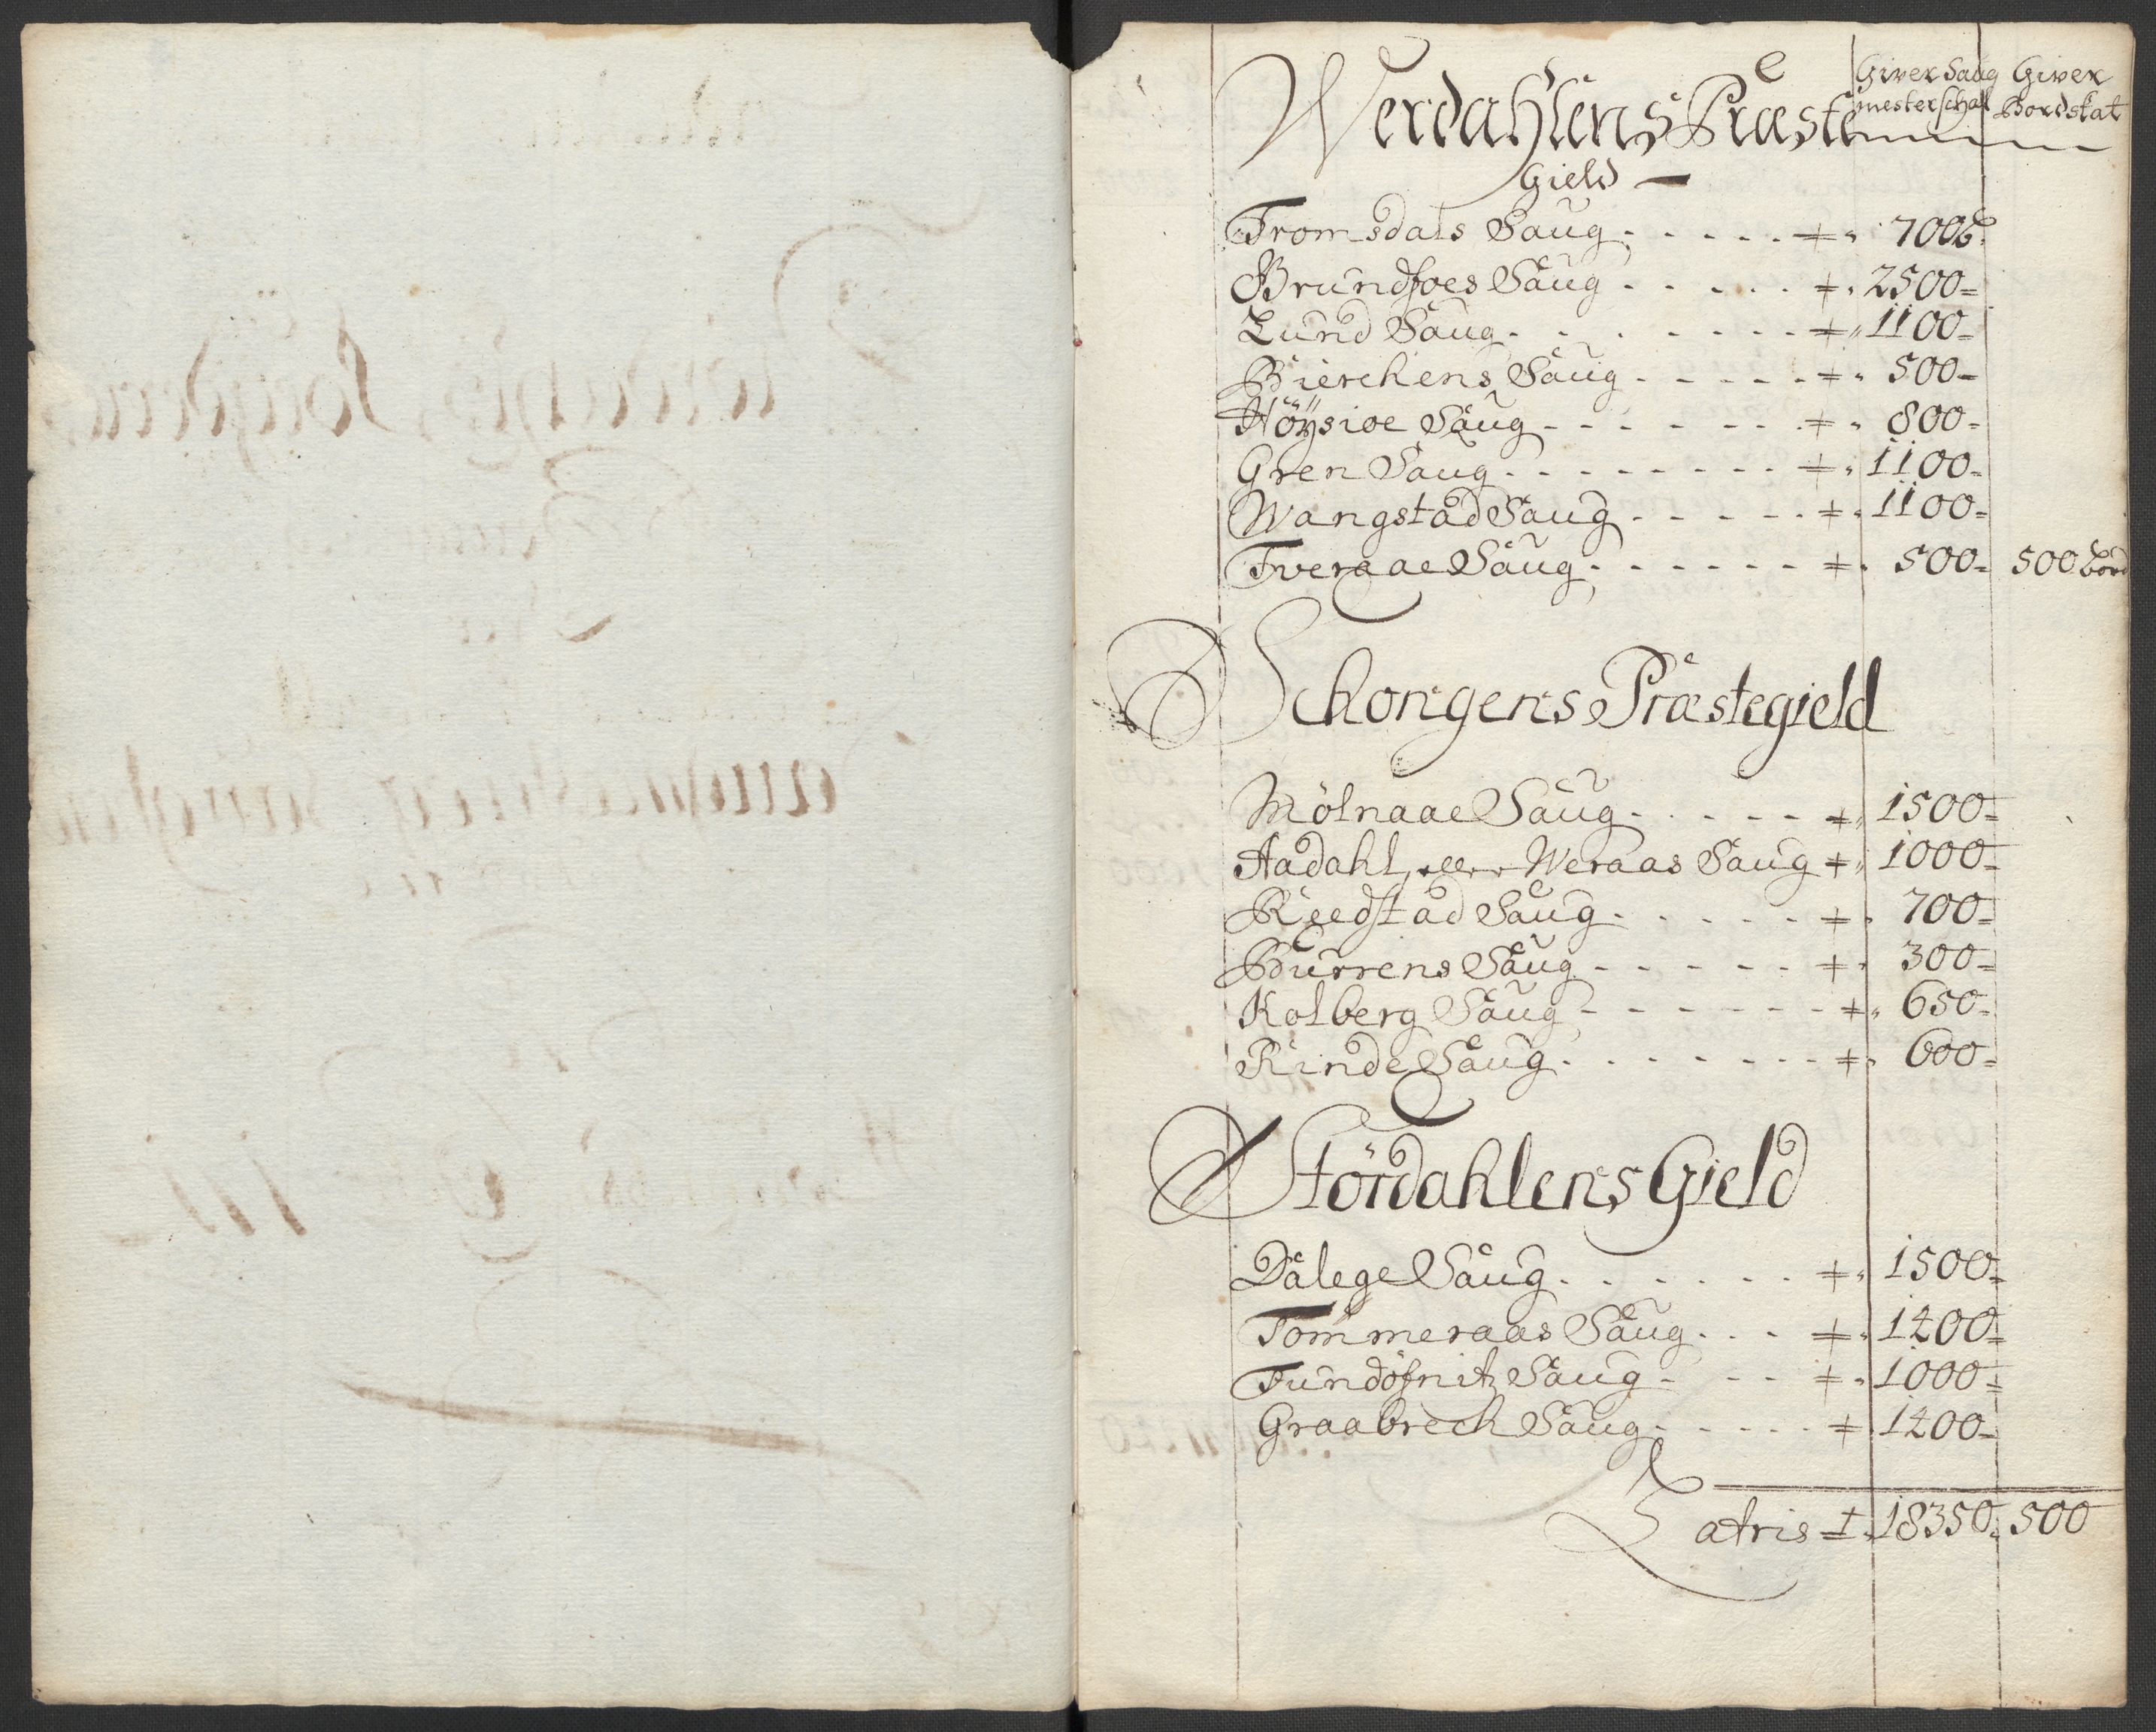 Giver Saug Giver
mesterschat Bordskat
Werdahlens Præste
Gield
Tromsdals Saug - - - - - 700 b.
Brundfoes Saug - - - - - 2500 =
Lund Saug - - - - - - - 1100 -
Bierchens Saug - - - - - 500 -
Höÿsioe Saug - - - - - - - 800 -
Gren Saug - - - - - - - - 1100 -
Wangstad Saug - - - - - 1100 -
Tveraae Saug - - - - - - 500 - 500 bord
Schongens Præstegield
Mölnaae Saug - - - - - 1500 =
Aadahl eller Weraas Saug 1000 -
Reedstad Saug - - - - - 700 =
Burrens Saug - - - - - 300 =
Kolberg Saug - - - - - - - 650 -
Rinde Saug - - - - - - - - 600 =
Stördahlens Gield
Dalege Saug - - - - - - 1500 =
Tömmeraas Saug - - - 1400 =
Fundösnitz Saug - - - 1000 =
Graabrech Saug - - - - - 1400 -
Latris 18350 = 500